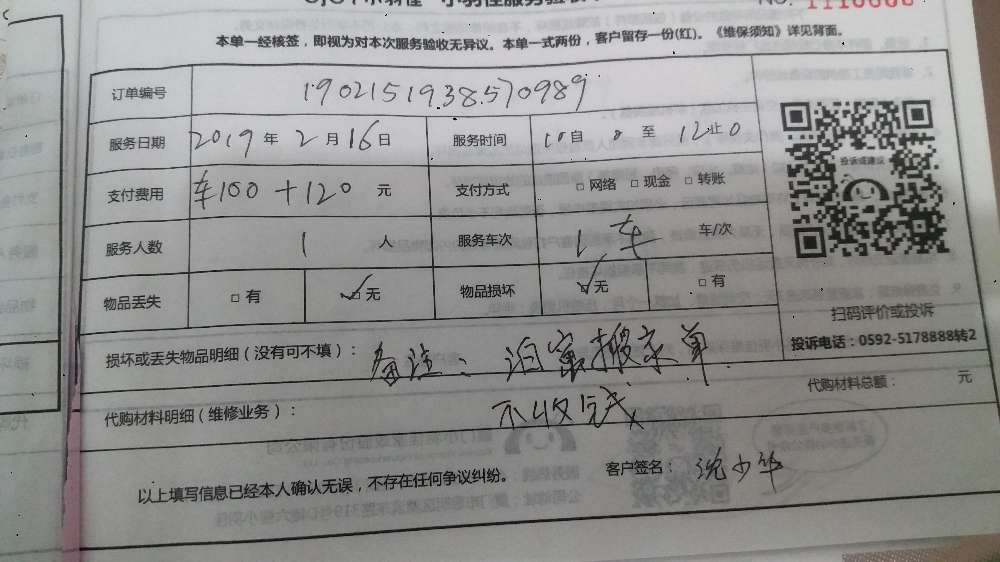 本单一经核签，即视为对本次服务验收无异议。本单一式两份，客户留存一份(红)。《维保须知》详见背面。
订单编号 1902151938570989
服务日期 2019 年 2 月 16 日 服务时间 10 自 0 至 12 止 0
支付费用 车100+120 元 支付方式 □ 网络 □ 现金 □ 转账
投诉或建议
服务人数 1 人 服务车次 1车 车/次
物品丢失 □ 有 ☑ 无 物品损坏 ☑ 无 □ 有
扫码评价或投诉
投诉电话：0592-5178888转2
损坏或丢失物品明细（没有可不填）： 备注：泊寓搬家单
代购材料明细（维修业务）： 不收钱 代购材料总额： 元
以上填写信息已经本人确认无误，不存在任何争议纠纷。 客户签名：沈少华